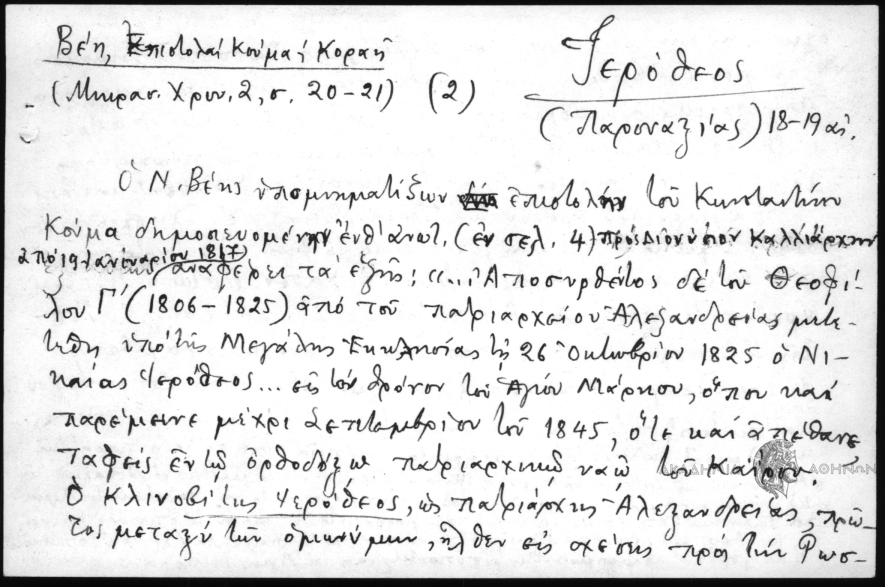 Βέη, Ἐπιστολαὶ Κούμα, Κοραῆ
(Μικρασ. Χρον. 2, σ. 20-21) (2)
Ἱερόθεος
(Παροναξίας) 18-19 αἰ.
Ὁ Ν. Βέης ὑπομνηματίζων ἐπιστολὴν τοῦ Κωνσταντίνου
Κούμα δημοσιευομένην ἔνθ' ἀνωτ. (ἐν σελ. 4) πρὸς Διονύσιον Καλλιάρχην
ἀπὸ 19 Ἰανουαρίου 1817
ἀναφέρει τὰ ἑξῆς: «... Ἀποσυρθέντος δὲ τοῦ Θεοφί-
λου Γ' (1806-1825) ἀπὸ τοῦ πατριαρχείου Ἀλεξανδρείας μετε-
τέθη ὑπὸ τῆς Μεγάλης Ἐκκλησίας τῇ 26 Ὀκτωβρίου 1825 ὁ Νι-
καίας Ἱερόθεος... εἰς τὸν θρόνον τοῦ Ἁγίου Μάρκου, ὅπου καὶ
παρέμεινε μέχρι Σεπτεμβρίου τοῦ 1845, ὅτε καὶ ἀπέθανε
ταφεὶς ἐν τῷ ὀρθοδόξῳ πατριαρχικῷ ναῷ τοῦ Καΐρου.
ΑΚΑΔΗΜΙΑ ΑΘΗΝΩΝ
Ὁ Κλινοβίτης Ἱερόθεος, ὡς πατριάρχης Ἀλεξανδρείας, πρῶ-
τος μεταξὺ τῶν ὁμωνύμων, ἦλθεν εἰς σχέσεις πρὸς τὴν Ρωσ-